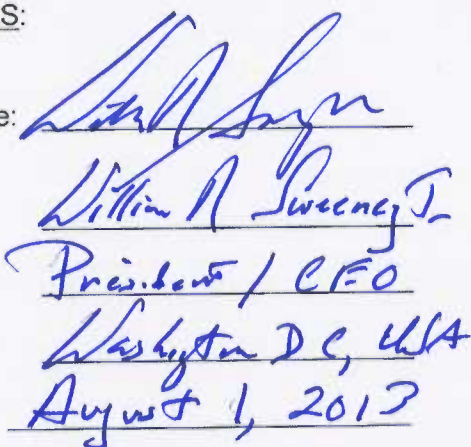 S:
e:
William R Sweeney Jr
President / CEO
Washington DC, USA
August 1, 2013